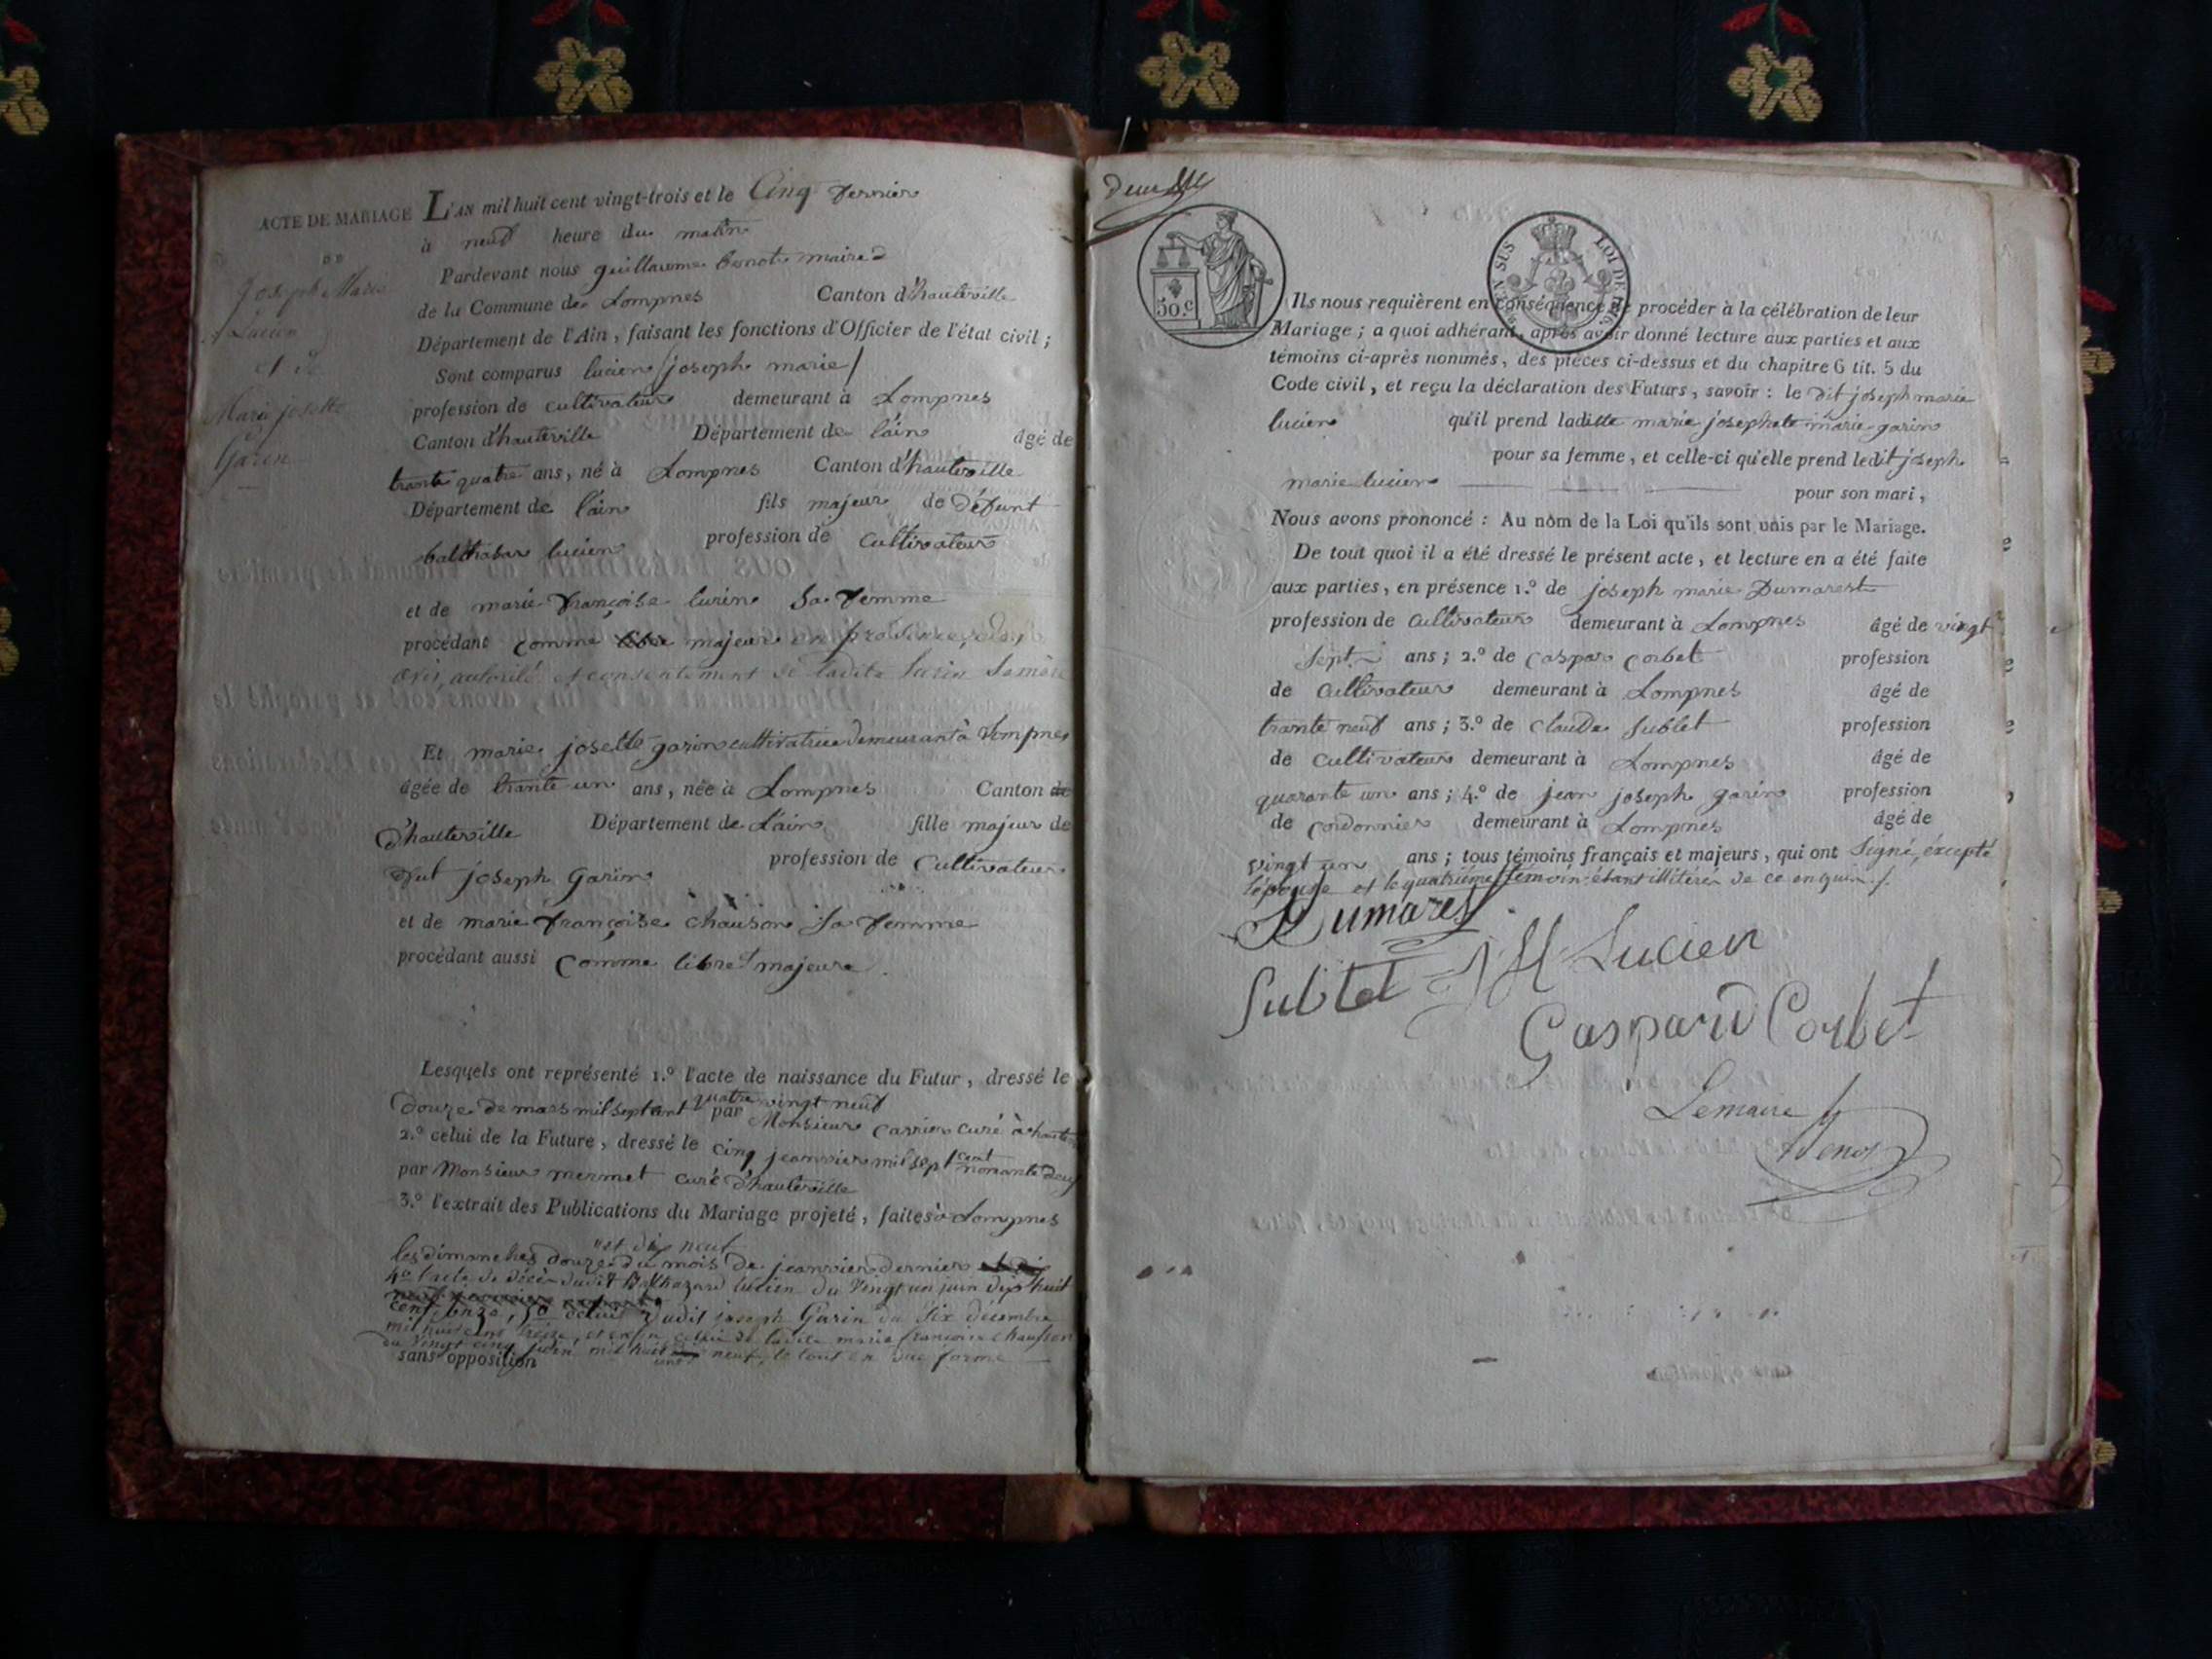 ACTE DE MARIAGE L'AN mil huit cent vingt-trois et le Cinq fevrier
à neuf heure du matin
Joseph Marie
Lucien
et de
Marie josette
Garin
Pardevant nous guillaume benoit maire
de la Commune de Lompnes Canton d'hauteville
Département de l'Ain, faisant les fonctions d'Officier de l'état civil ;
Sont comparus lucien joseph marie /
profession de cultivateur demeurant à Lompnes
Canton d'hauteville Département de l'ain âgé de
trante quatre ans, né à Lompnes Canton d'hauteville
Département de l'ain fils majeur de défunt
balthasar lucien profession de cultivateur
et de marie françoise lurin sa femme
procédant comme libre majeur en présence,
avis, autorité et consentement de ladite Lurin sa mère
Et marie josette garin cultivatrice demeurant à Lompnes
âgée de trante un ans, née à Lompnes Canton de
d'hauteville Département de l'ain fille majeur de
joseph Garin profession de cultivateur
et de marie françoise chauson sa femme
procédant aussi comme libre et majeure.
Lesquels ont représenté 1.º l'acte de naissance du Futur, dressé le
douze de mars mil sept cent quatre vingt neuf
par Monsieur carrier curé à haute
2.º celui de la Future, dressé le cinq jeanvier mil sept cent nonante deux
par Monsieur mermet curé d'hauteville
3.º l'extrait des Publications du Mariage projeté, faites à Lompnes
les dimanches douze et dix neuf du mois de jeanvier dernier et dix
4º l'acte de décès dudit Balthazard lucien du vingt un juin dix huit
cent onze, 5º celui dudit joseph Garin du six décembre
mil huit cent treize, et enfin celui de ladite marie françoise chauson
du vingt cinq juin mil huit cent neuf, le tout en due forme
sans opposition
50.c
LOI DE
EN SUS
Ils nous requièrent en conséquence de procéder à la célébration de leur
Mariage ; a quoi adhérant, après avoir donné lecture aux parties et aux
témoins ci-après nommés, des pièces ci-dessus et du chapitre 6 tit. 5 du
Code civil, et reçu la déclaration des Futurs, savoir : le dit joseph marie
lucien qu'il prend ladite marie josephete marie garin
pour sa femme, et celle-ci qu'elle prend ledit joseph
marie lucien pour son mari,
Nous avons prononcé : Au nom de la Loi qu'ils sont unis par le Mariage.
De tout quoi il a été dressé le présent acte, et lecture en a été faite
aux parties, en présence 1.º de joseph marie Dumarest
profession de cultivateur demeurant à Lompnes âgé de vingt
sept ans ; 2.º de Caspar Corbet profession
de cultivateur demeurant à Lompnes âgé de
trante neuf ans ; 3.º de claude Sublet profession
de cultivateur demeurant à Lompnes âgé de
quarante un ans ; 4.º de jean joseph garin profession
de cordonnier demeurant à Lompnes âgé de
vingt un ans ; tous témoins français et majeurs, qui ont signé, excepté
l'épouse et le quatrième témoin étant illitérés de ce enquis /.
Dumarest
Sublet JM Lucien
Gaspard Corbet
Lemaire
Benoit